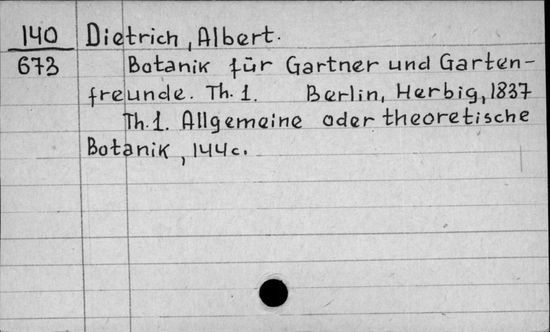 140 Dietrich, Albert.
673 Botanik für Gartner und Garten-
freunde. Th. 1. Berlin, Herbig, 1837
Th. 1. Allgemeine oder theoretische
Botanik, 144 c.